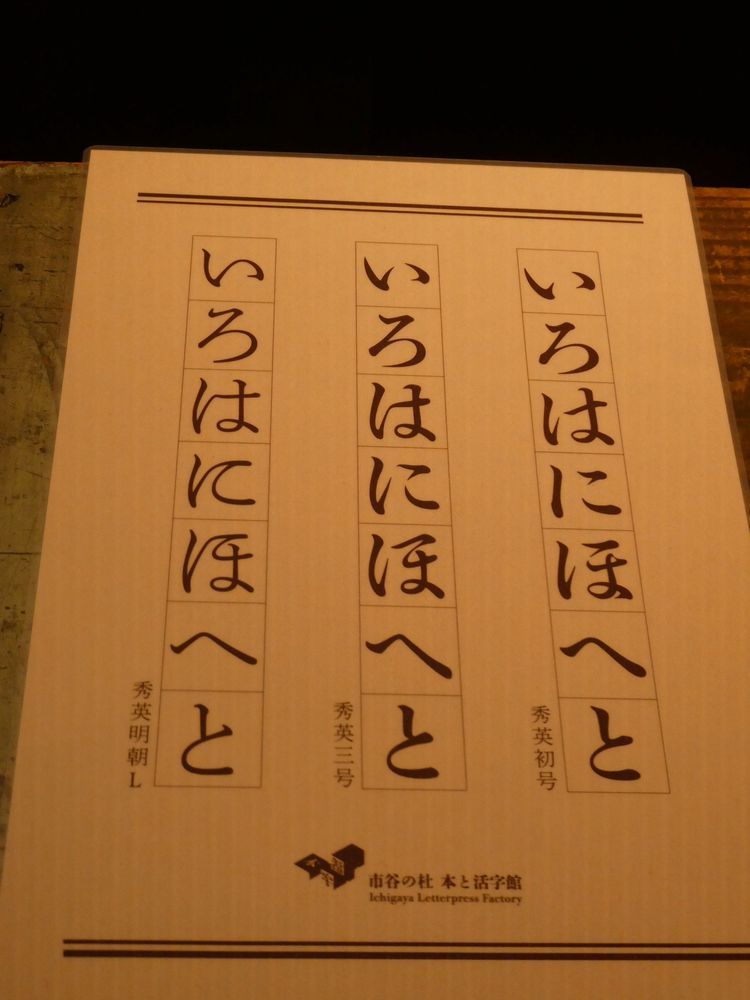 いろはにほへと
秀英初号
いろはにほへと
秀英三号
いろはにほへと
秀英明朝L
市谷の杜 本と活字館
Ichigaya Letterpress Factory